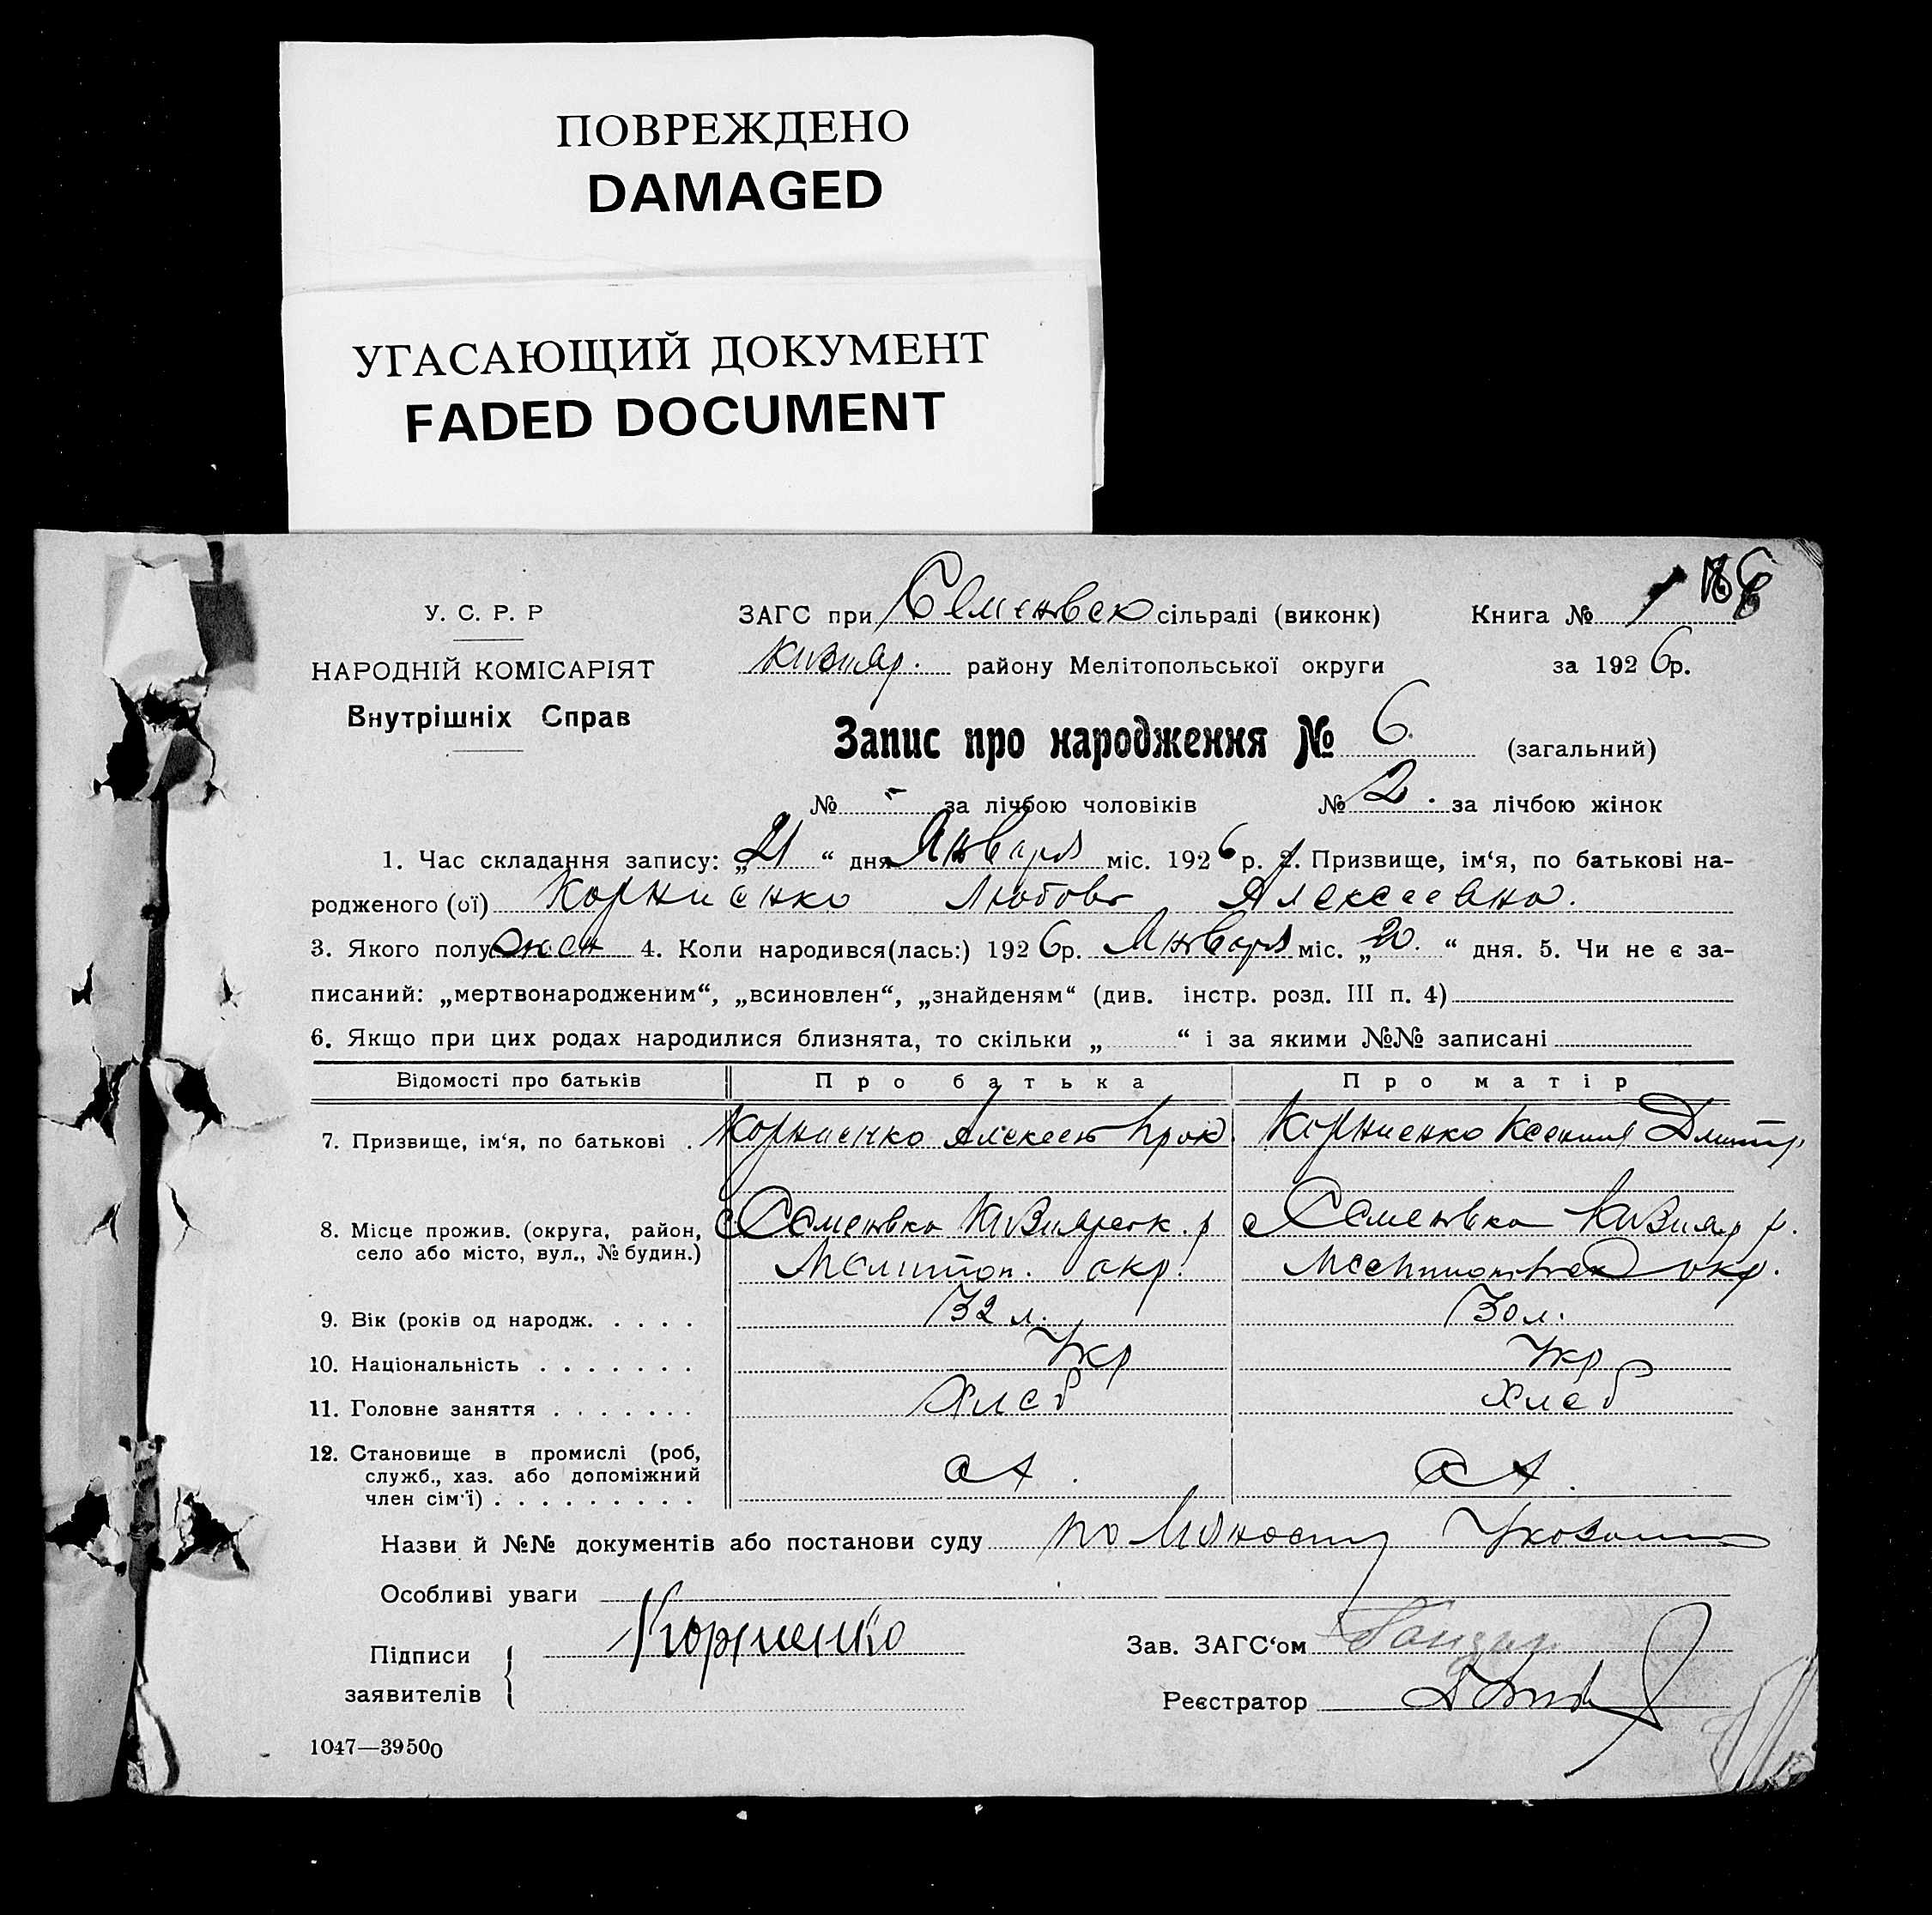 ПОВРЕЖДЕНО
DAMAGED
УГАСАЮЩИЙ ДОКУМЕНТ
FADED DOCUMENT
У. С. Р. Р
НАРОДНІЙ КОМІСАРІЯТ
Внутрішніх Справ
ЗАГС при Семеновск сільраді (виконк) Книга № 1
Кизияр. району Мелітопольської округи за 1926р.
Запис про народження № 6. (загальний)
№ - за лічбою чоловіків № 2. за лічбою жінок
1. Час складання запису: „21“ дня Января міс. 1926р. 2. Призвище, ім‘я, по батькові на-
родженого (ої) Корниенко Любовь Алексеевна.
3. Якого полу жен 4. Коли народився(лась:) 1926р. Января міс. „20.“ дня. 5. Чи не є за-
писаний: „мертвонародженим“, „всиновлен“, „знайденям“ (див. інстр. розд. III п. 4)
6. Якщо при цих родах народилися близнята, то скільки „ “ і за якими №№ записані
Відомості про батьків Про батька Про матір
7. Призвище, ім‘я, по батькові . Корниенко Алексей Прок. Корниенко Ксения Дмитр.
8. Місце прожив. (округа, район, с Семеновка Кизиярск. р с Семеновка Кизияр р.
село або місто, вул., № будин.) Мелитоп. окр. окр.
9. Вік (років од народж. . . . . 32 л. 30 л.
10. Національність . . . . . . . Укр Укр
11. Головне заняття . . . . . . . Хлеб Хлеб
12. Становище в промислі (роб,
служб., хаз. або допоміжний
член сім‘ї) . . . . . . . . .
Назви й №№ документів або постанови суду по
Особливі уваги
Підписи Корниенко Зав. ЗАГС‘ом
заявителів Реєстратор
1047—39500